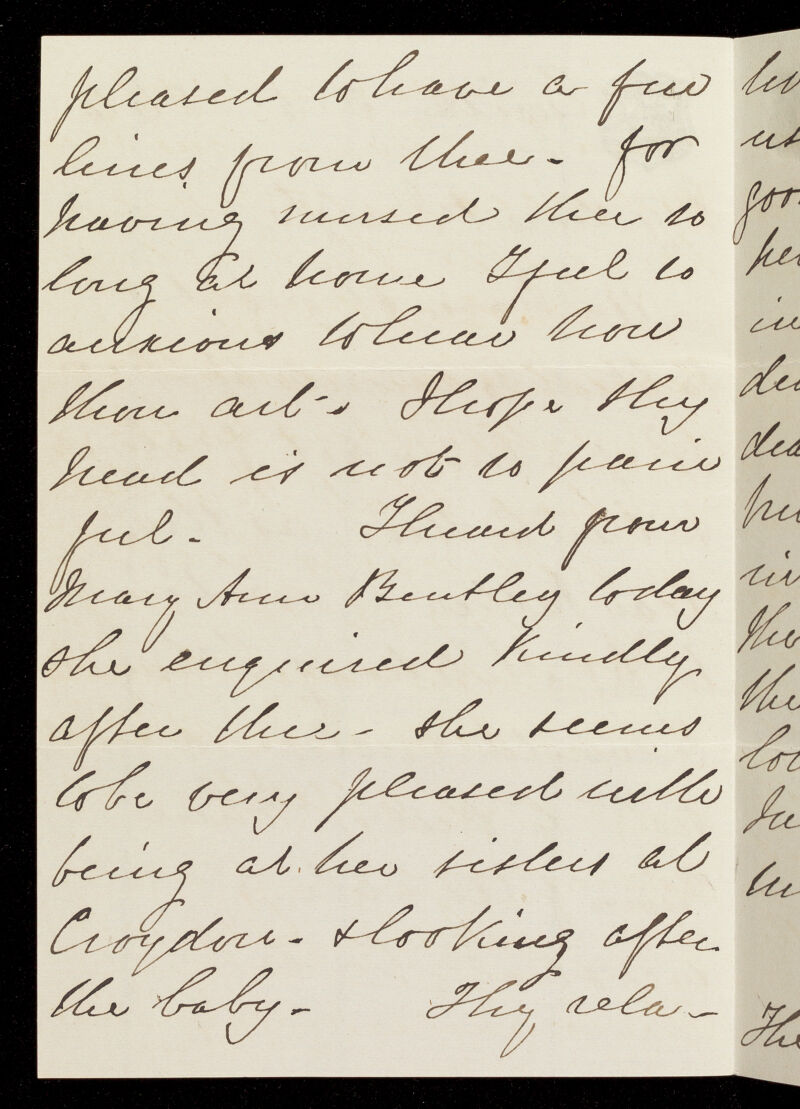 pleased to have a few
lines from thee - for
having nursed thee so
long at home I feel so
anxious to hear how
thou art - I hope thy
head is not so pain
ful - I heard from
Mary Ann Bentley today
she enquired kindly
after thee - she seems
to be very pleased with
being at her sisters at
Croydon - & looking after
the baby - Thy rela -